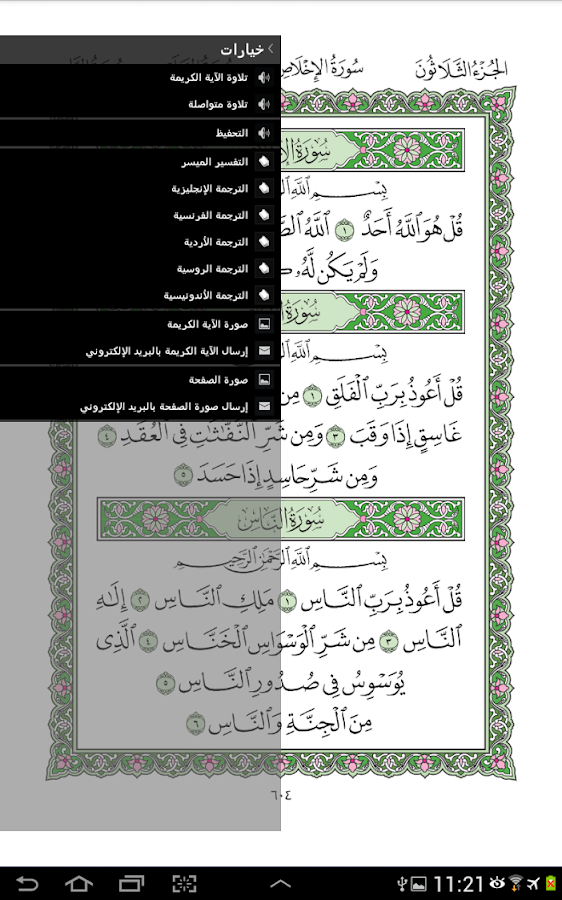 الجُزْءُ الثَّلَاثُونَ
سُورَةُ الإِخْلَاصِ
خيارات
تلاوة الآية الكريمة
تلاوة متواصلة
التحفيظ
التفسير الميسر
الترجمة الإنجليزية
الترجمة الفرنسية
الترجمة الأردية
الترجمة الروسية
الترجمة الأندونيسية
صورة الآية الكريمة
إرسال الآية الكريمة بالبريد الإلكتروني
صورة الصفحة
إرسال صورة الصفحة بالبريد الإلكتروني
سُورَةُ
بِسْمِ اللَّهِ
قُلْ هُوَ اللَّهُ أَحَدٌ ١ اللَّهُ
وَلَمْ يَكُن لَّهُ
سُورَةُ
بِسْمِ اللَّهِ
قُلْ أَعُوذُ بِرَبِّ الْفَلَقِ ١ مِن
غَاسِقٍ إِذَا وَقَبَ ٣ وَمِن شَرِّ النَّفَّاثَاتِ فِي الْعُقَدِ ٤
وَمِن شَرِّ حَاسِدٍ إِذَا حَسَدَ ٥
سُورَةُ النَّاسِ
بِسْمِ اللَّهِ الرَّحْمَٰنِ الرَّحِيمِ
قُلْ أَعُوذُ بِرَبِّ النَّاسِ ١ مَلِكِ النَّاسِ ٢ إِلَٰهِ
النَّاسِ ٣ مِن شَرِّ الْوَسْوَاسِ الْخَنَّاسِ ٤ الَّذِي
يُوَسْوِسُ فِي صُدُورِ النَّاسِ ٥
مِنَ الْجِنَّةِ وَالنَّاسِ ٦
٦٠٤
11:21